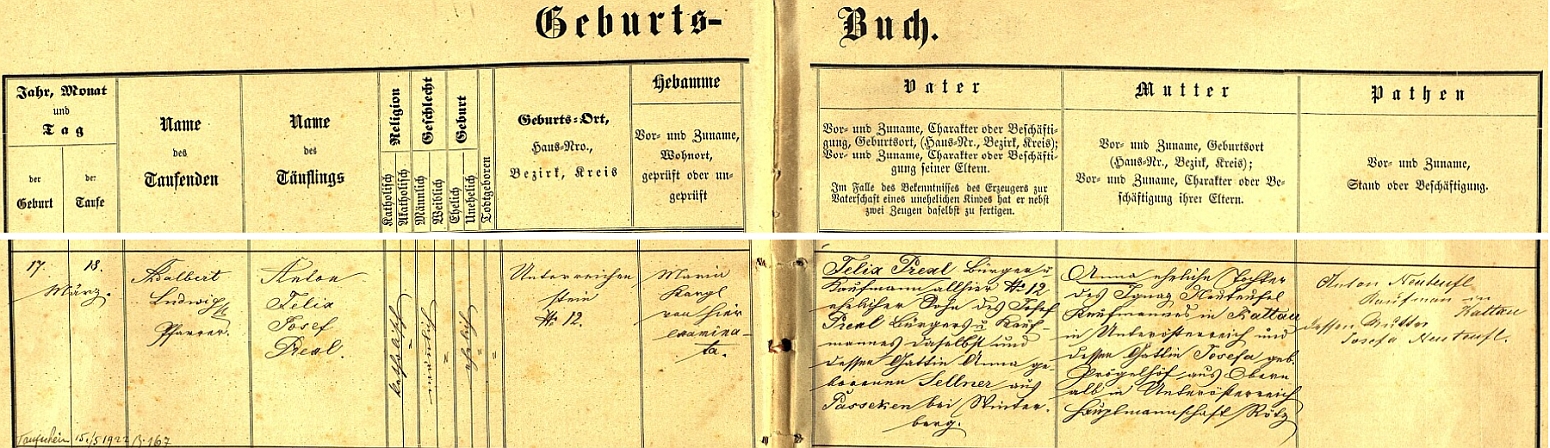 Geburts-Buch.
Jahr, Monat
und
Tag
der
Geburt
der
Taufe
Name
des
Taufenden
Name
des
Täuflings
Religion
Katholisch
Akatholisch
Geschlecht
Männlich
Weiblich
Geburt
Ehelich
Unehelich
Todtgeboren
Geburts-Ort,
Haus-Nro.,
Bezirk, Kreis
Hebamme
Vor- und Zuname,
Wohnort,
geprüft oder un-
geprüft
Vater
Vor- und Zuname, Charakter oder Beschäfti-
gung, Geburtsort, (Haus-Nr., Bezirk, Kreis);
Vor- und Zuname, Charakter oder Beschäfti-
gung seiner Eltern.
Im Falle des Bekenntnisses des Erzeugers zur
Vaterschaft eines unehelichen Kindes hat er nebst
zwei Zeugen daselbst zu fertigen.
Mutter
Vor- und Zuname, Geburtsort
(Haus-Nr., Bezirk, Kreis);
Vor- und Zuname, Charakter oder Be-
schäftigung ihrer Eltern.
Pathen
Vor- und Zuname,
Stand oder Beschäftigung.
17. 18.
März.
Adalbert
Ludwig
Pfarrer
Anton
Felix
Josef
Prexl.
katholisch
männlich
ehelich
Unterreichen
stein
№ 12.
Maria
Kargl
von hier
examina-
ta.
Felix Prexl Bürger u
Kaufmann allhier № 12
ehelicher Sohn des Josef
Prexl Bürgers u Kauf-
mannes daselbst und
dessen Gattin Anna ge-
borenen Sellner aus
Passeken bei Winter-
berg.
Anna eheliche Tochter
des Ignaz Neuteufel
Kaufmannes in Kattau
in Unterösterreich und
dessen Gattin Josefa geb.
Prögelhöf aus Obern
alb in Unterösterreich
Hauptmannschaft Rötz
Anton Neuteufl
Kaufman in
Kattau
dessen Mutter
Josefa Neuteufl.
Taufschein 15/5 1922